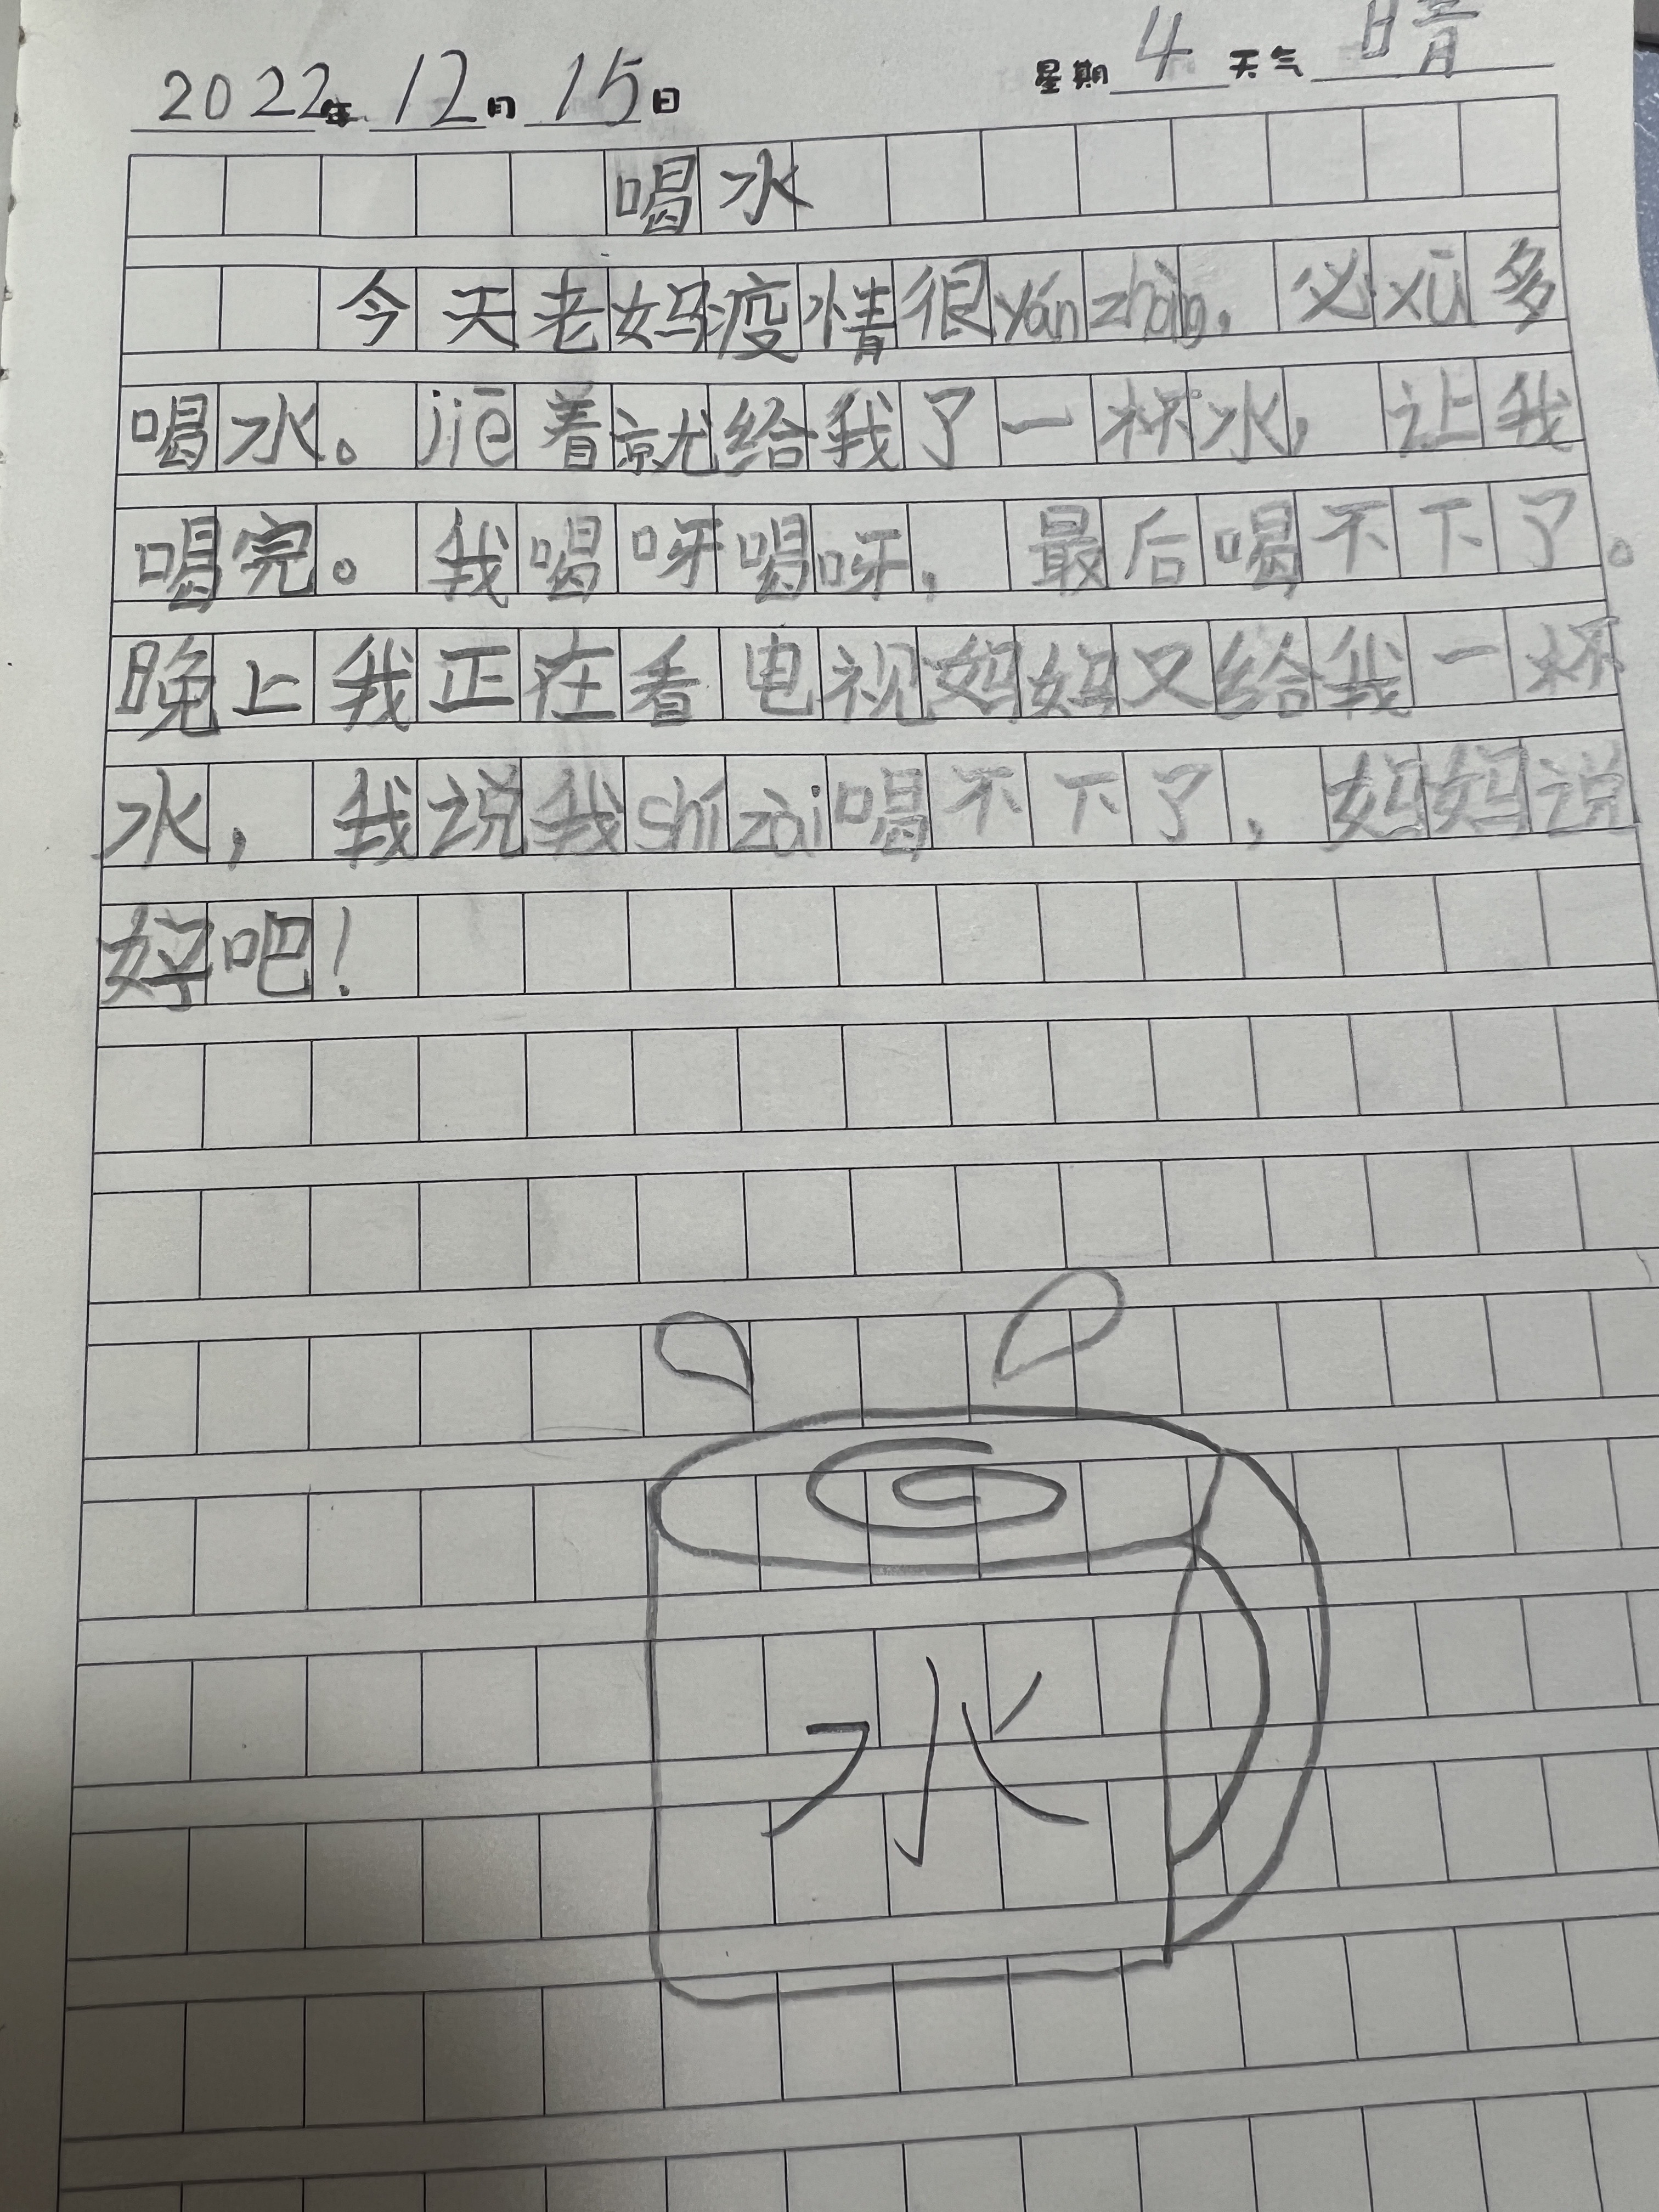 2022年12月15日 星期4天气晴
喝水
今天老妈疫情很yánzhòng，必xū多
喝水。jiē着就给我了一杯水，让我
喝完。我喝呀喝呀，最后喝不下了。
晚上我正在看电视妈妈又给我一杯
水，我说我shízài喝不下了，妈妈说
好吧！
水